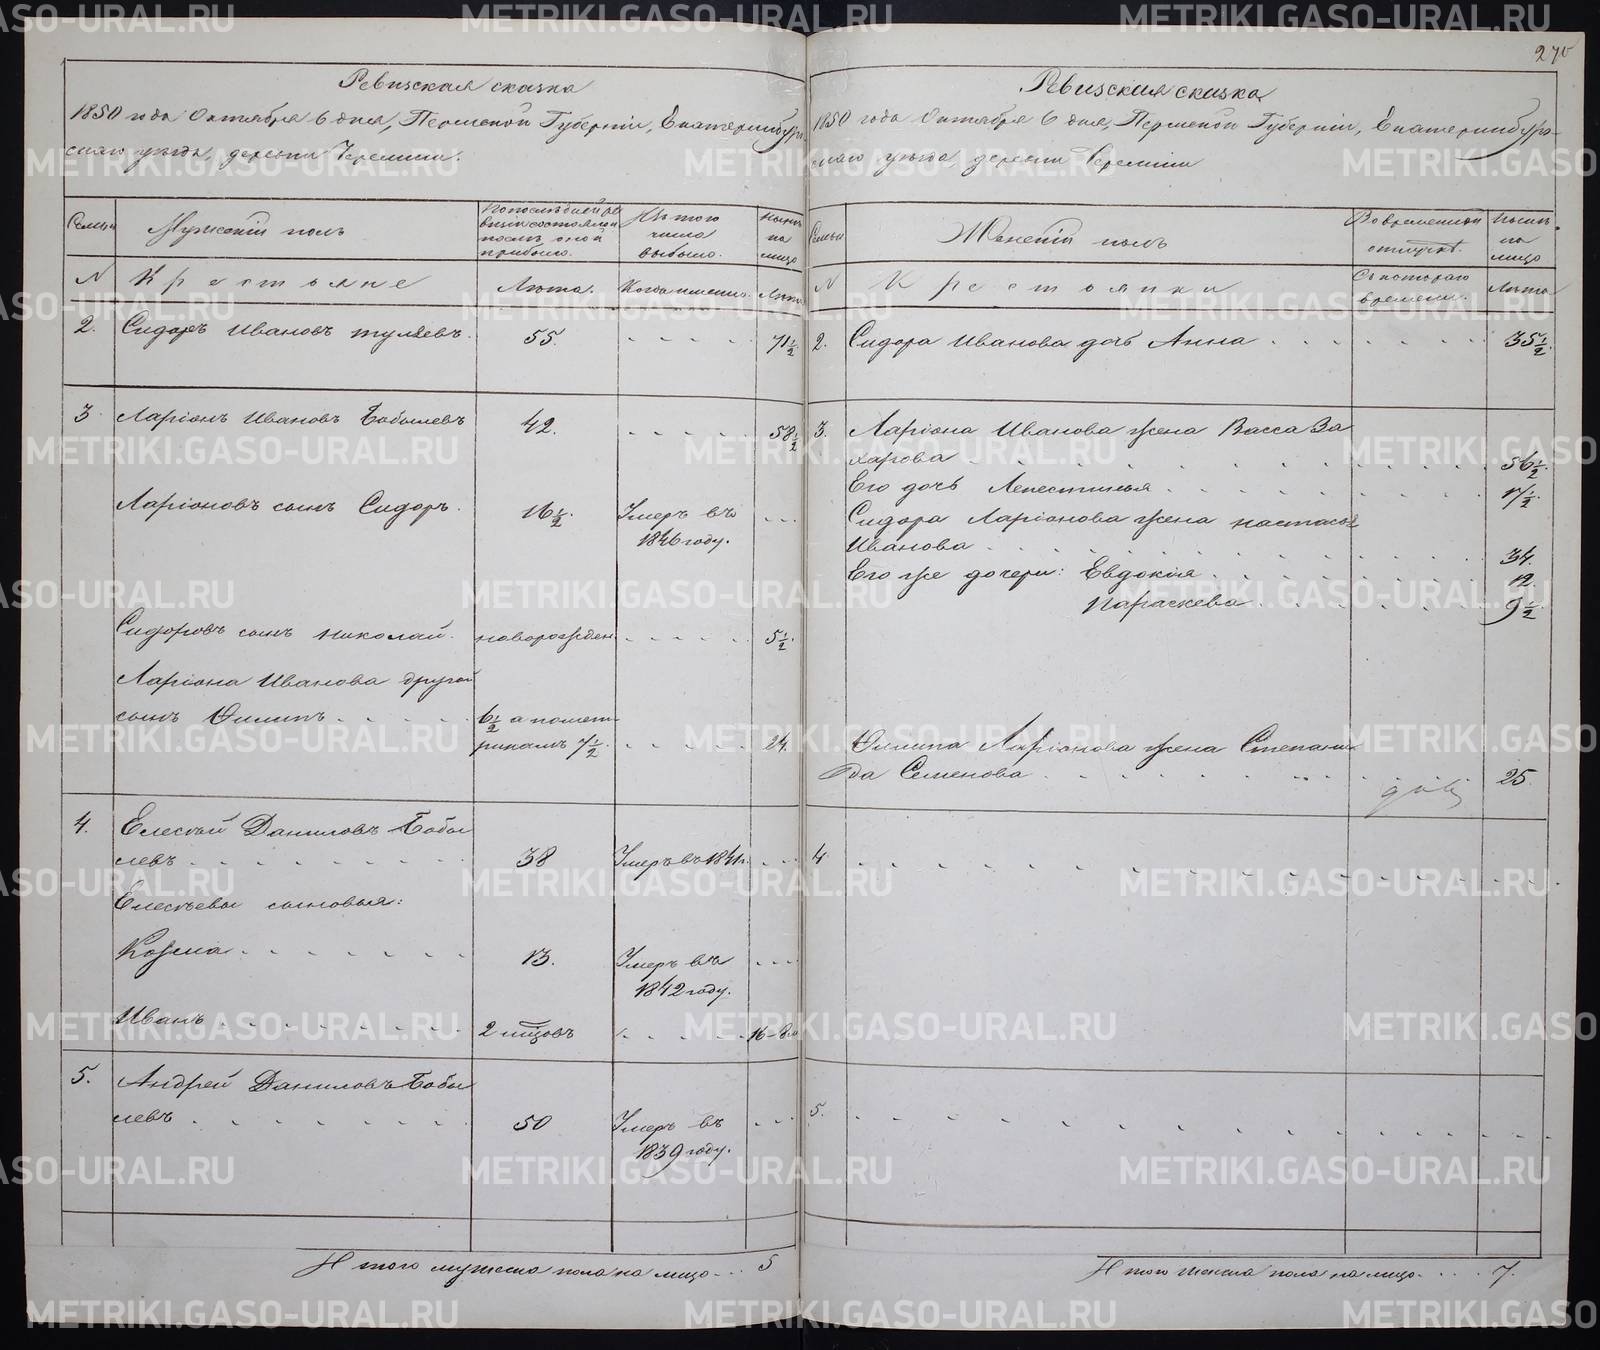 270
Ревизская сказка
1850 года Октября 6 дня, Пермской Губерніи, Екатеринбург-
скаго уезда, деревни Черемиси.
Семьи
Мужескій полъ
По последней ре
визіи состояло и
после оной
прибыло.
Изъ того
числа
выбыло.
Ныне
на
лицо
N
Крестьяне
Лѣта.
Когда именно.
Лѣта
2.
Сидоръ Ивановъ туляевъ.
55.
71 1/2
3
Ларіонъ Ивановъ Бобылевъ
42.
58 1/2
Ларіоновъ сынъ Сидоръ.
16 1/2
Умеръ въ
1846 году.
Сидоровъ сынъ Николай.
новорожден.
5 1/2.
Ларіона Иванова другой
сынъ Филипъ
6 1/2 а помет-
рикамъ 7 1/2.
24.
4.
Елесѣй Даниловъ Бобы
левъ
38
Умеръ въ 1841 г.
Елесѣевы сыновья:
Козма
13.
Умеръ въ
1842 году.
Иванъ
2 мцовъ
16
5.
Андрей Даниловъ Бобы
левъ
50
Умеръ въ
1839 году.
Итого мужеска пола на лицо 5
Ревизская сказка
1850 года Октября 6 дня, Пермской Губерніи, Екатеринбург-
скаго уезда, деревни Черемиси
Семьи
Женскій полъ
Во временной
отлучкѣ.
Ныне
на
лицо
N
Крестьянки
Съ котораго
времени.
Лѣта
2.
Сидора Иванова дочь Анна
35 1/2
3.
Ларіона Иванова жена Васса За
харова
56 1/2.
Его дочь Лепестинья
Сидора Ларіонова жена настась
Иванова
34.
Его же дочери: Евдокія
12.
Параскева
9 1/2
Филипа Ларіонова жена Степани
да Семенова
25.
4
5.
Итого женска пола на лицо 7.
METRIKI.GASO-URAL.RU